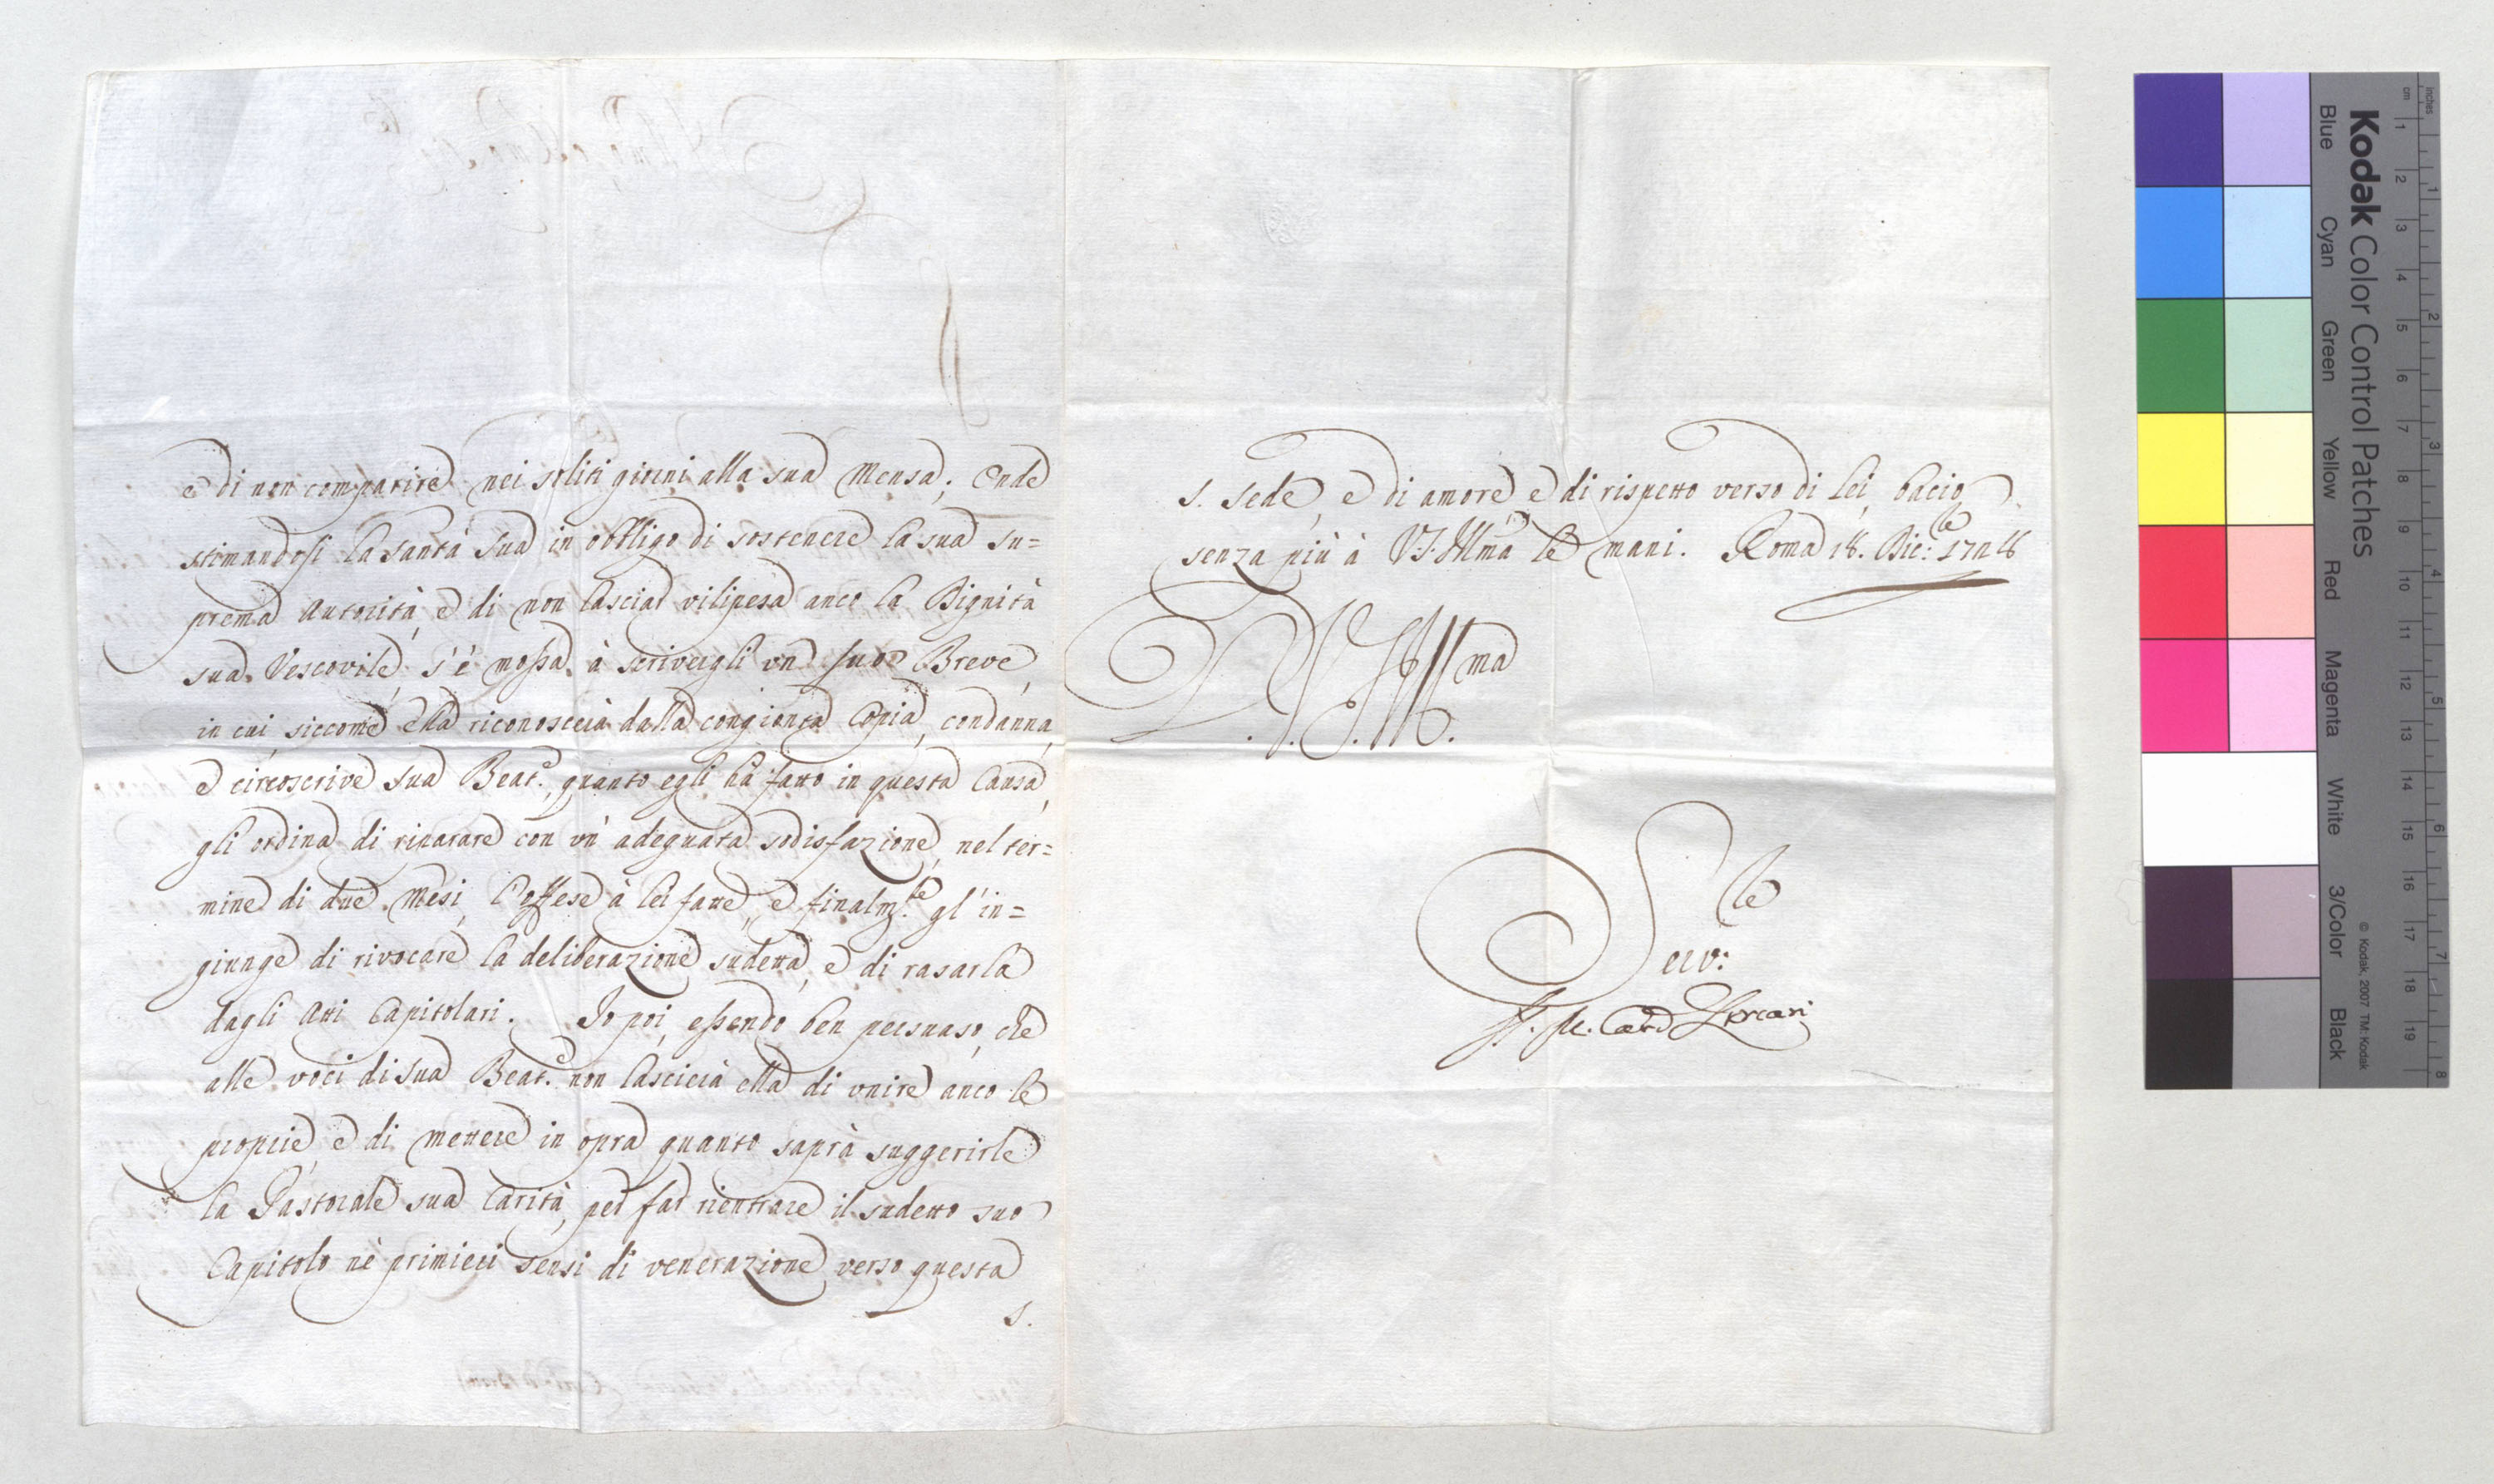 e di non comparire nei soliti giorni alla sua Mensa; Onde
stimandosi la Santà Sua in obbligo di sostenere la sua su=
prema Autorità, e di non lasciar vilipesa anco la Dignità
sua Vescovile, s'è mossa à scrivergli un suo Breve,
in cui siccome ella riconoscerà dalla congionta Copia, condanna,
e circoscrive Sua Beat.e, quanto egli hà fatto in questa Causa,
gli ordina di riparare con un' adeguata sodisfazione, nel ter=
mine di due Mesi, l'offese à lei fatte, e finalm.te gl'in=
giunge di rivocare la deliberazione sudetta, e di rasarla
dagli Atti Capitolari. Io poi, essendo ben persuaso, che
alle voci di Sua Beat.e non lascierà ella di unire anco le
proprie, e di mettere in opra quanto saprà suggerirle
la Pastorale sua Carità, per far rientrare il sudetto suo
Capitolo nè primieri sensi di venerazione verso questa
S.
S. Sede, e di amore e di rispetto verso di lei, bacio
senza più à V.S. Illma le mani. Roma 18. Dic:
V.S. Illma
Serv:le
Card
Kodak Color Control Patches
Blue
Cyan
Green
Yellow
Red
Magenta
White
3/Color
Black
© Kodak, 2007 TM: Kodak
cm 1 2 3 4 5 6 7 8 9 10 11 12 13 14 15 16 17 18 19
inches 1 2 3 4 5 6 7 8